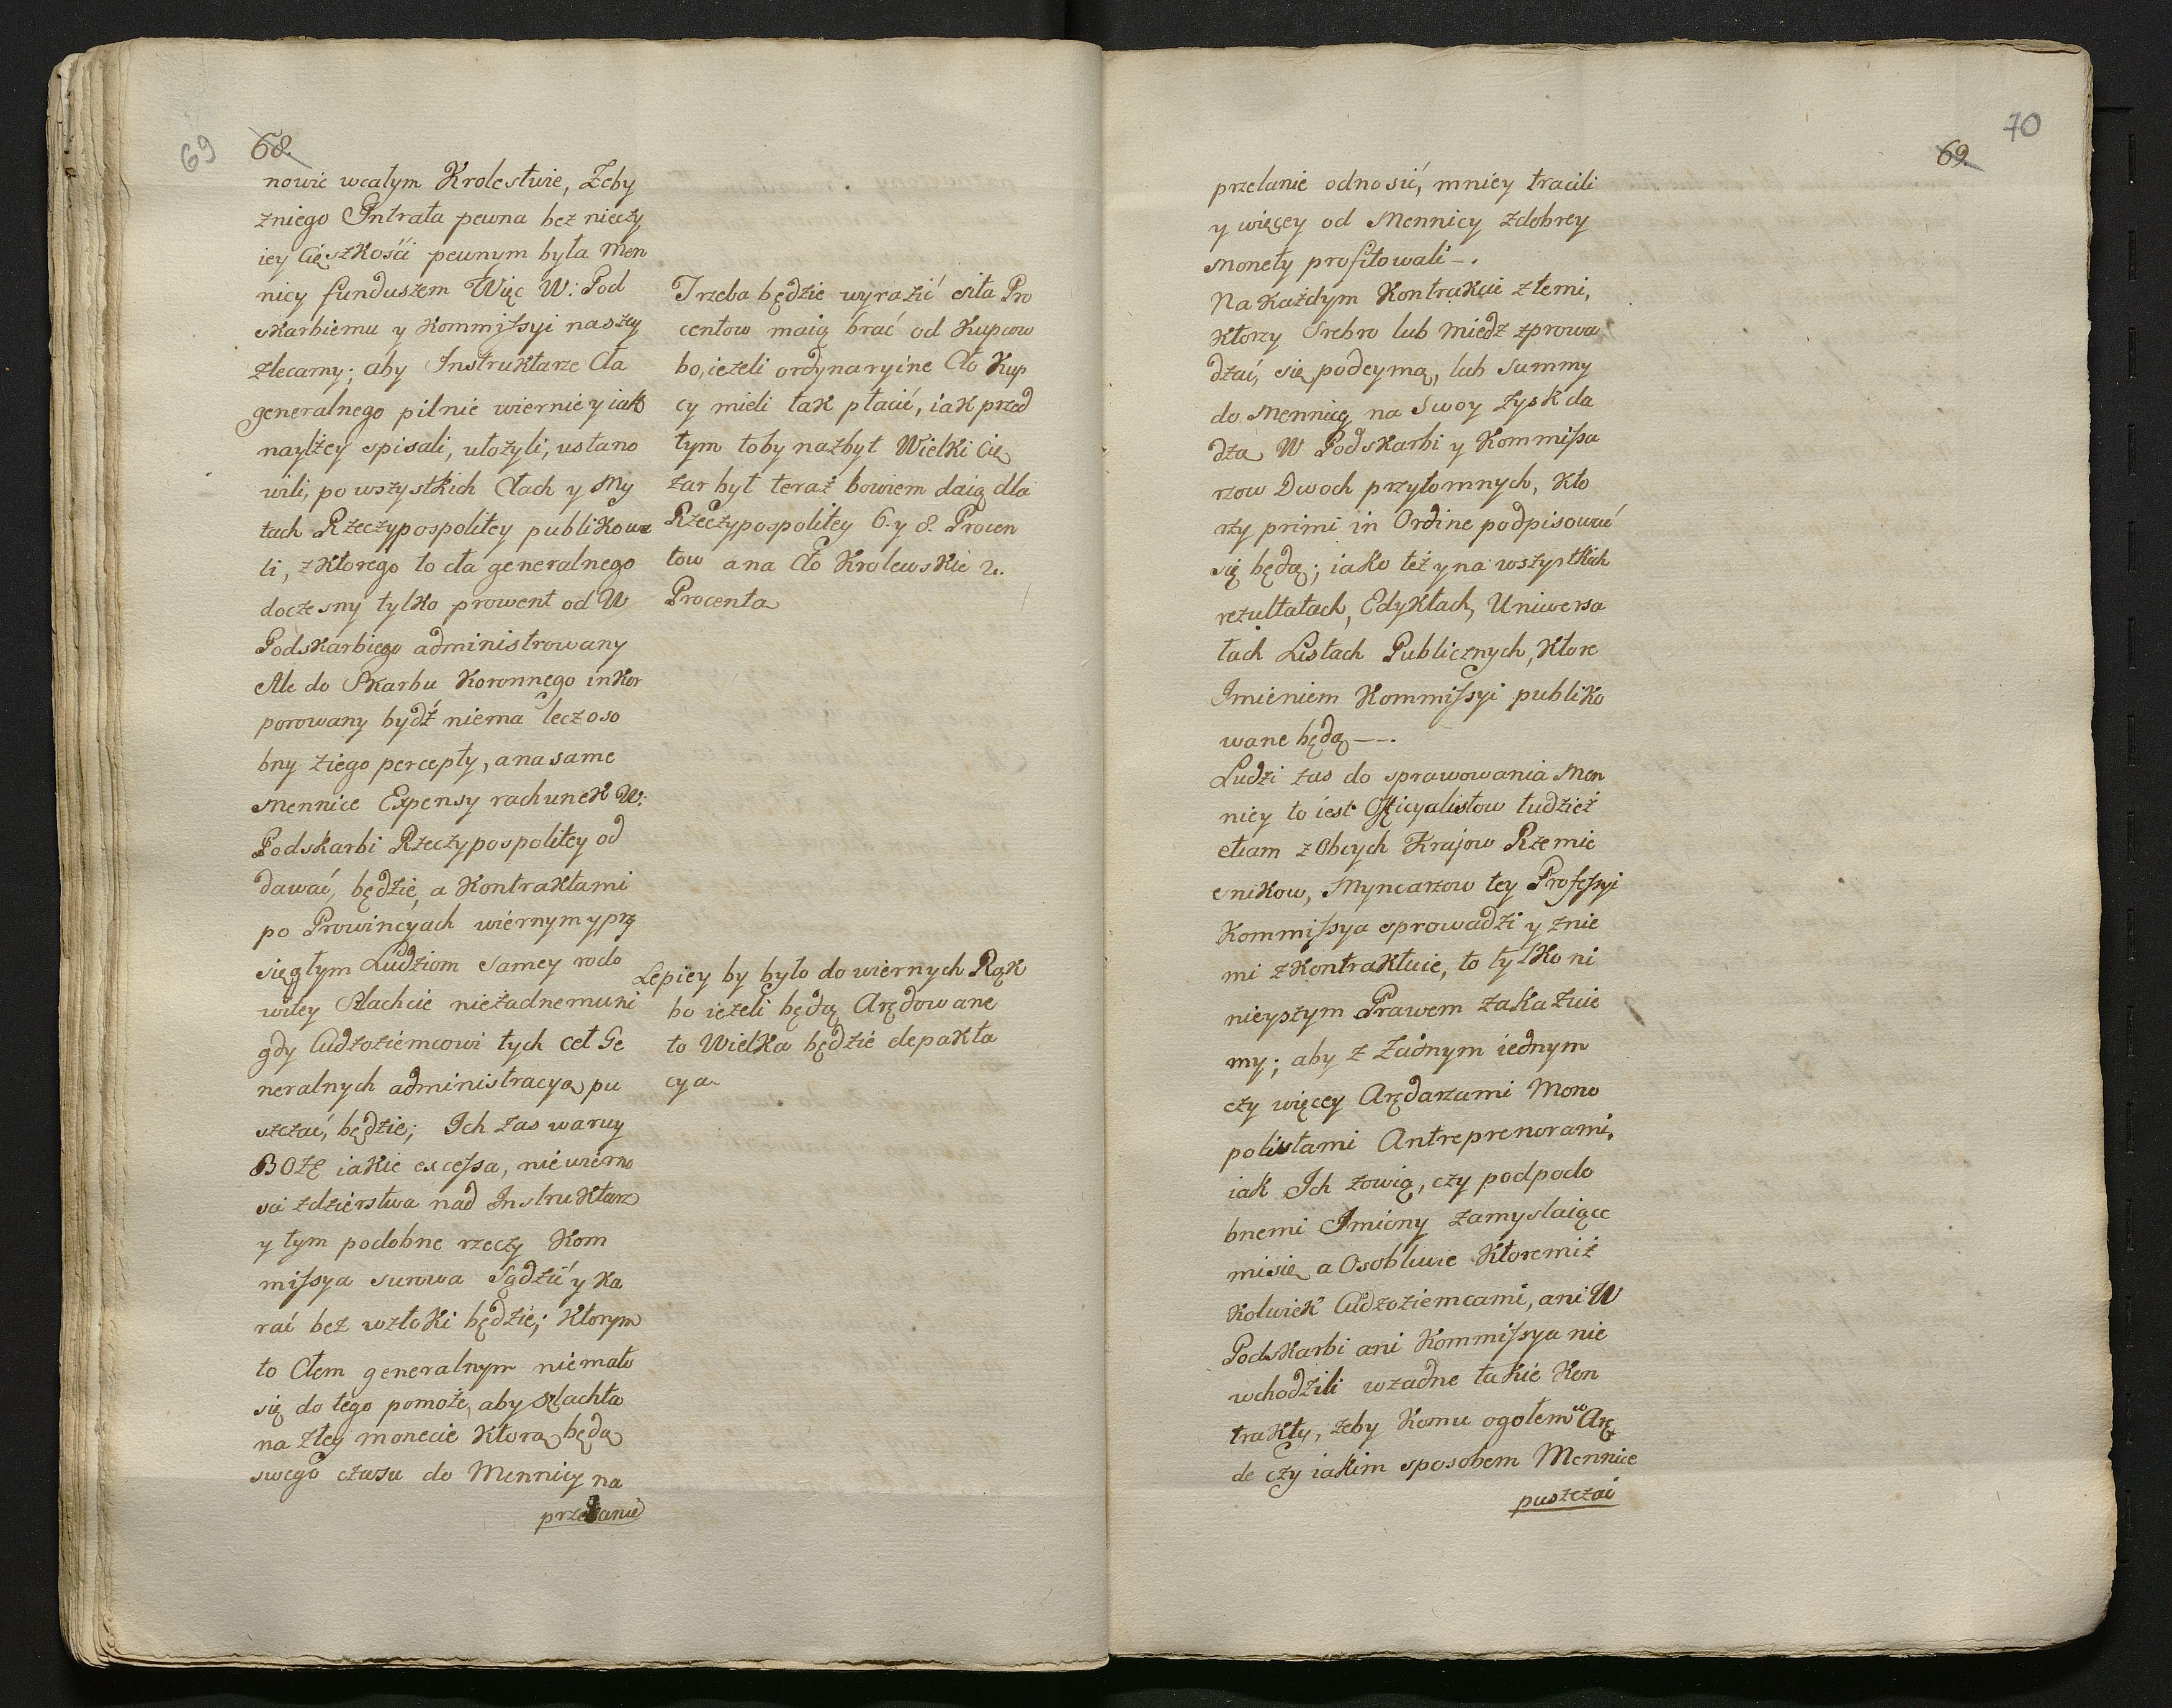 69
68.
nowić wcałym Krolestwie, Żeby
zniego Intrata pewna bez nieczy
iey Cięszkości pewnym była Men
nicy funduszem Więc W: Pod
skarbiemu y Kommissyi naszey
zlecamy; aby Instruktarze Cła
generalnego pilnie wiernie y iak
naylżey spisali, ułożyli, ustano
wili, po wszystkich Cłach y My
tach Rzeczypospolitey publikowa
li, z którego to cła generalnego
doczesny tylko prowent od W
Podskarbiego administrowany
Ale do Skarbu Koronnego inkor
porowany bydź niema lecz oso
bny ziego percepty, a na same
Mennice Expensy rachunek W:
Podskarbi Rzeczypospolitey od
dawać, będzie, a Kontraktami
po Prowincyach wiernym y prz
sięgłym Ludziom samey rodo
witey Szlachcie nieżadnemu ni
gdy Cudzoziemcowi tych Ceł Ge
neralnych administracyą pu
szczać, będzie; Ich zas waruy
BOŻE iakie excessa, niewierno
sci zdzierstwa nad Instruktarz
y tym podobne rzeczy Kom
missya surowa Sądzić y Ka
rać bez wzłoki będzie; Ktorym
to Cłem generalnym niemało
się do tego pomoże, aby Szlachta
na złey monecie Ktorą będą
swego czasu do Mennicy na
przelanie
Trzeba będzie wyrazić siła Pro
centow maią brać od Kupcow
bo, ieżeli ordynaryine Cło Kup
cy mieli tak płacić, iak przed
tym toby nazbyt Wielki Cię
żar był teraz bowiem daią dla
Rzeczypospolitey 6. y 8. Procen
tow a na Cło Krolewskie 2.
Procenta
Lepiey by było do wiernych Rąk
bo ieżeli będą Arędowane
to Wielka będzie depakta
cya
70
69.
przelanie odnosić, mniey tracili
y więcey od Mennicy zdobrey
Monety profitowali -.
Na Każdym Kontrakcie z temi,
Ktorzy Srebro lub miedz zprowa
dzać, się podeymą, lub Summy
do Mennicy na Swoy zysk da
dzą W Podskarbi y Kommissa
rzow Dwoch przytomnych, Kto
rzy primi in Ordine podpisować
się będą; iako też y na wszystkich
rezultatach, Edyktach, Uniwersa
łach Listach Publicznych, Ktore
Imieniem Kommissyi publiko
wane będą --.
Ludzi zas do sprawowania Men
nicy to iest Officyalistow tudzież
etiam z Obcych Krajow Rzemie
snikow, Myncarzow tey Professyi
Kommissya sprowadzi y znie
mi zKontraktuie, to tylko ni
nieyszym Prawem zakazuie
my; aby z Żadnym iednym
czy więcey Arędarzami Mono
polistami Antreprenorami,
iak Ich zowią, czy podpodo
bnemi Imiony zamyslaiące
misię a Osobliwie Ktoremiż
Kolwiek Cudzoziemcami, ani W
Podskarbi ani Kommissya nie
wchodzili wżadne takie Kon
trakty, żeby Komu ogołem w Arę
de czy iakim sposobem Mennice
puszczać